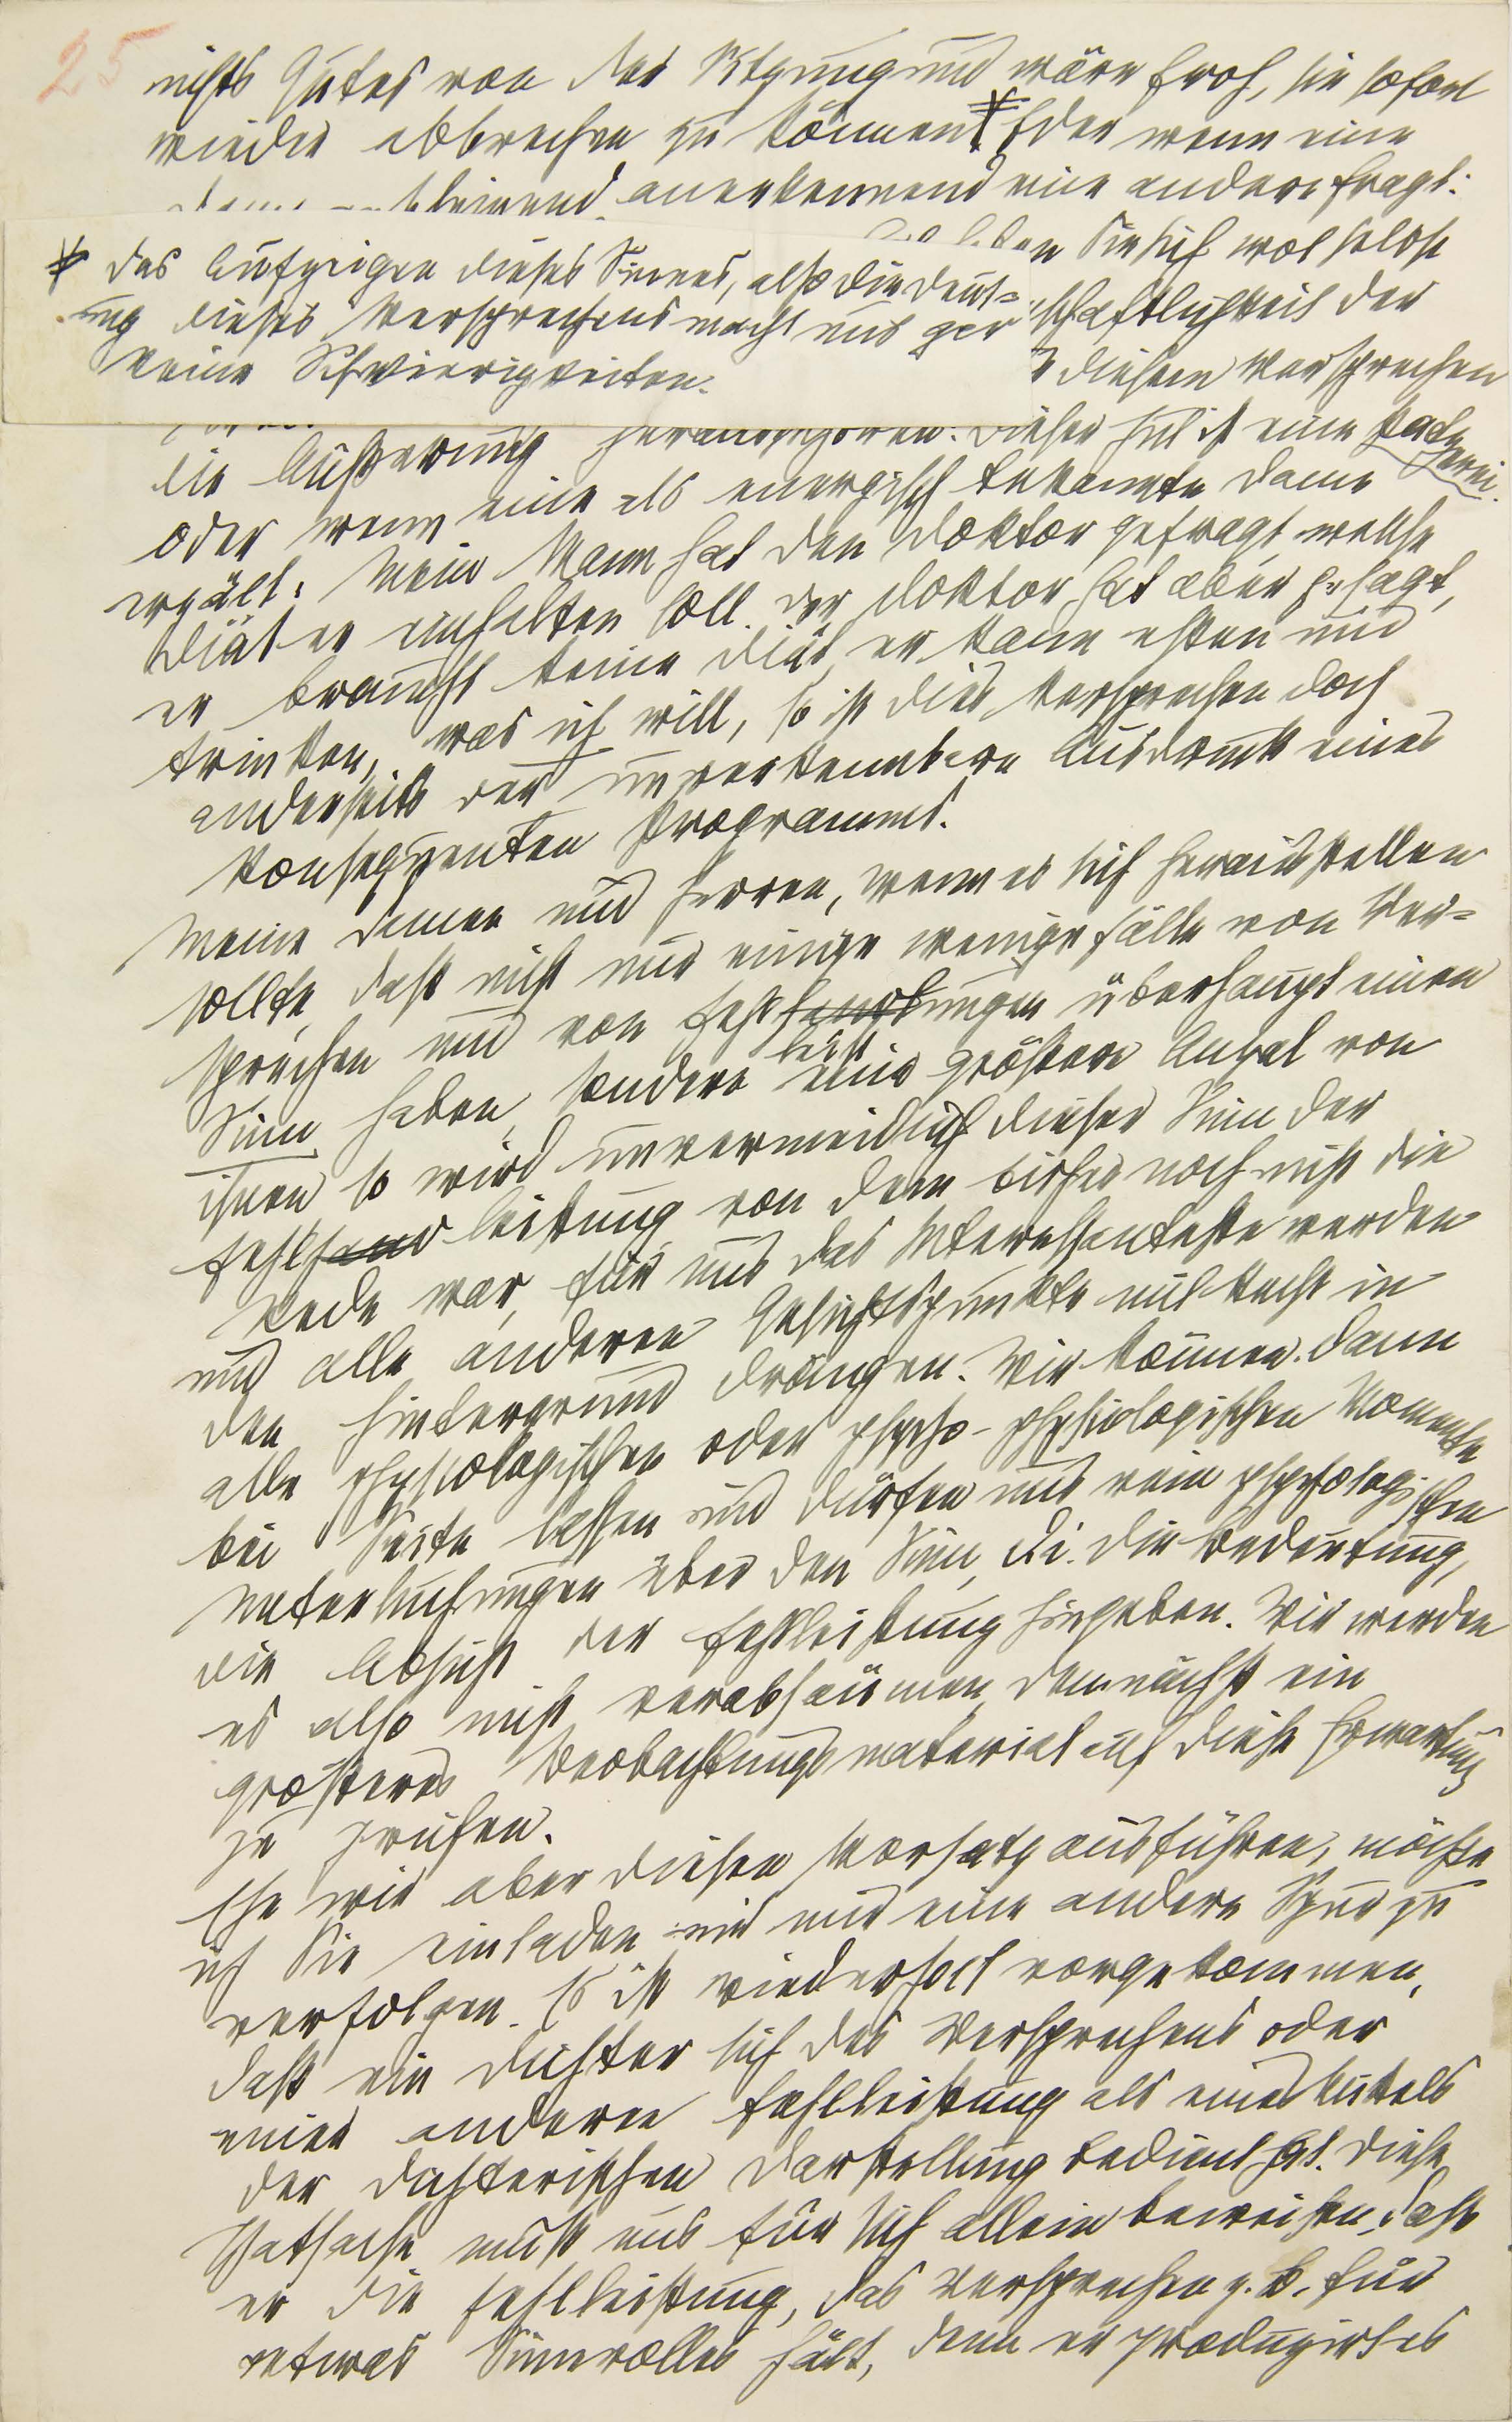 25
nichts Gutes von der Sitzung und wäre froh, sie sofort
wieder abbrechen zu können.* Oder wenn eine
anerkennend eine andere fragt:
n Sie sich wol selbst
* Das Aufzeigen dieses Sinnes, also die Deut=
ung dieses Versprechens macht uns gar
keine Schwierigkeiten.
schaftlichkeit der
diesem Versprechen
die Äußerung herauszuhören: Dieser Hut ist eine Patzerei.
Oder wenn eine als energisch bekannte Dame
erzält: Mein Mann hat den Doktor gefragt, welche
Diät er einhalten soll. Der Doktor hat aber gesagt,
er braucht keine Diät, er kann essen und
trinken, was ich will, so ist dies Versprechen doch
anderseits der unverkennbare Ausdruck eines
konsequenten Programms.
Meine Damen und Herren, wenn es sich herausstellen
sollte, daß nicht nur einige wenige Fälle von Ver=
sprechen und von Fehlhandlungen überhaupt einen
leist
Sinn haben, sondern eine größere Anzal von
ihnen so wird unvermeidlich dieser Sinn der
Fehlhandleistung, von dem bisher noch nicht die
Rede war, für uns das Interessanteste werden
und alle anderen Gesichtspunkte mit Recht in
den Hintergrund drängen. Wir können dann
alle physiologischen oder psycho-physiologischen Momente
bei Seite lassen und dürfen uns rein psychologischen
Untersuchungen über den Sinn, d.i. die Bedeutung,
die Absicht der Fehlleistung hingeben. Wir werden
es also nicht verabsäumen, demnächst ein
größeres Beobachtungsmaterial auf diese Erwartung
zu prüfen.
Ehe wir aber diesen Vorsatz ausführen, möchte
ich Sie einladen mit mir eine andere Spur zu
verfolgen. Es ist wiederholt vorgekommen,
daß ein Dichter sich des Versprechens oder
einer anderen Fehlleistung als eines Mittels
der dichterischen Darstellung bedient hat. Diese
Thatsache muß uns für sich allein beweisen, daß
er die Fehlleistung, das Versprechen z.B. für
etwas Sinnvolles hält, denn er produzirt es